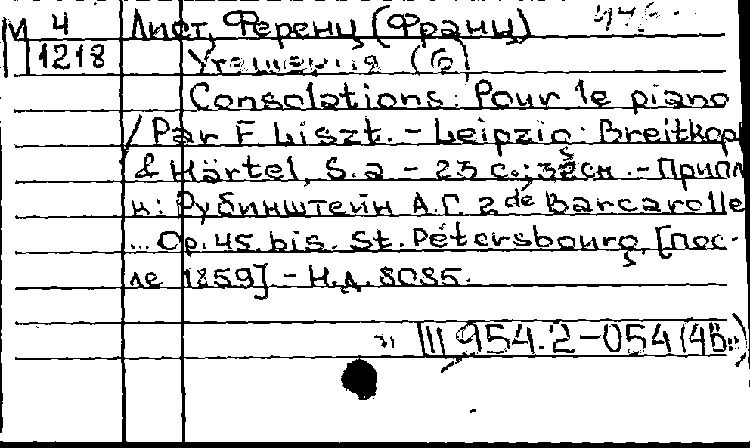 М 4 Лист, Ференц (Франц)
1218 Утешения (6)
Consolations: Pour le piano
/ Par F Liszt. - Leipzig: Breitkop
& Härtel, S.a - 23 с.; 32 см. - Припл
к: Рубинштейн А.Г. 2de Barcarolle
... Op. 45. bis. St. Pétersbourg, [пос-
ле 1859] - Н.д. 8085.
III 954.2-054